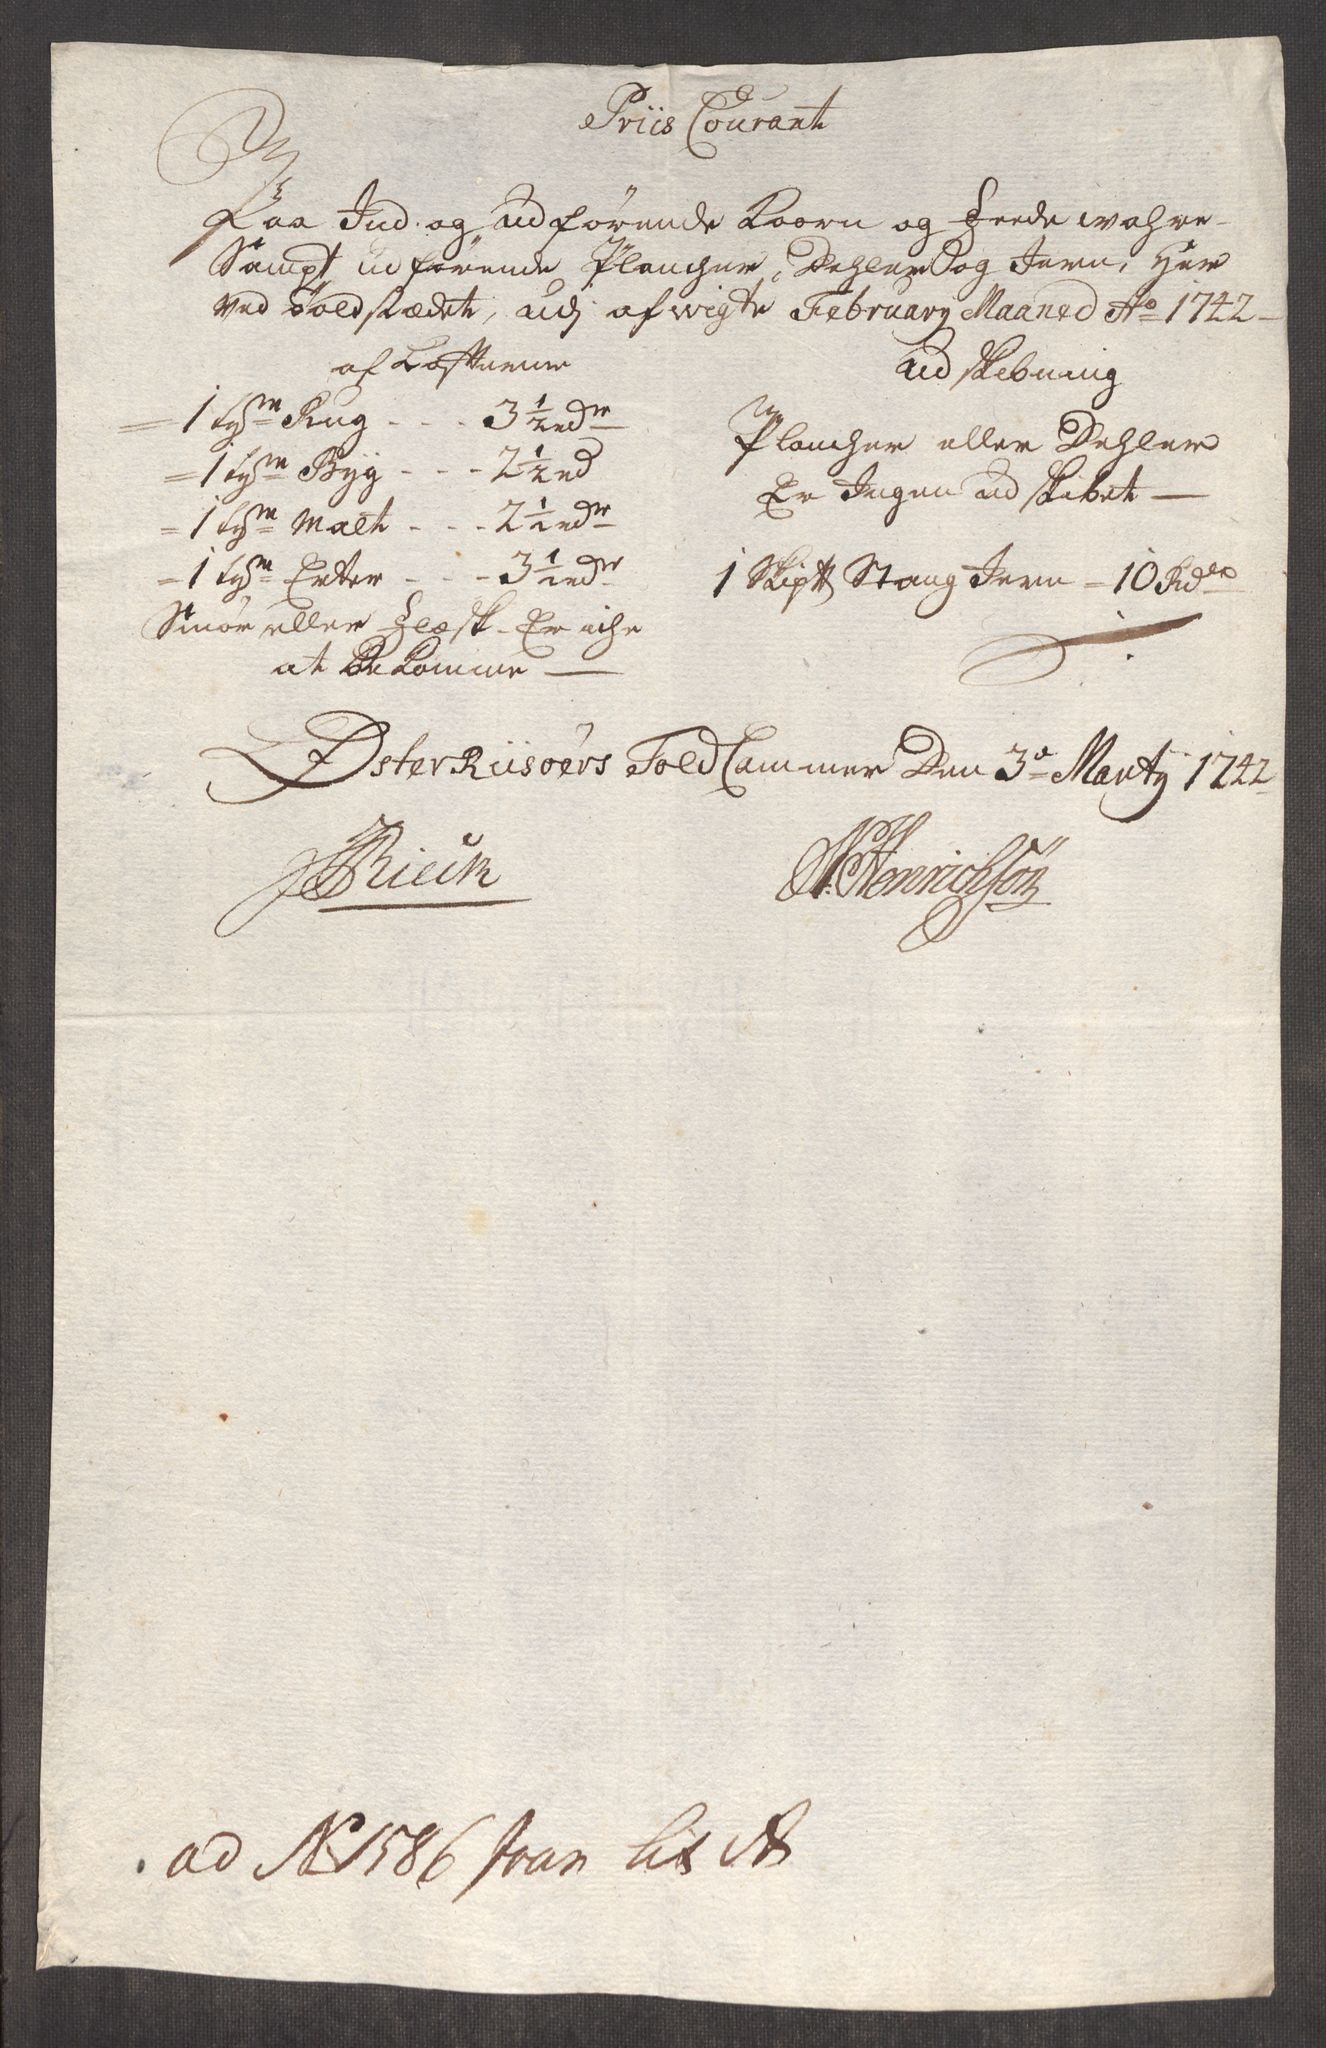 Priis Courant
Paa Ind og udförende Koorn og Feede wahre
Sampt udförende Plancher, Dehler og Jern, Her
Ved Toldstædet, udj afwigte February Maaned Ao 1742
af Løfterne
1 tøn Rug - - - 3 1/2 rdr
1 tøn Byg - - - 2 1/2 rd
1 tøn Malt - - - 2 1/2 rdr
1 tøn Erter - - - 3 1/2 rdr
Smör eller Flæsk Er iche
at Bekomme
Udskibning
Plancher eller Dehler
Er Ingen udskibet
1 Skip℔ Stang Jern = 10 Rdr
ØsterRiisöers Told Cammer Den 3e Marty 1742
Rieck
N: Henrichsön
ad No 1586 Joan Lit A